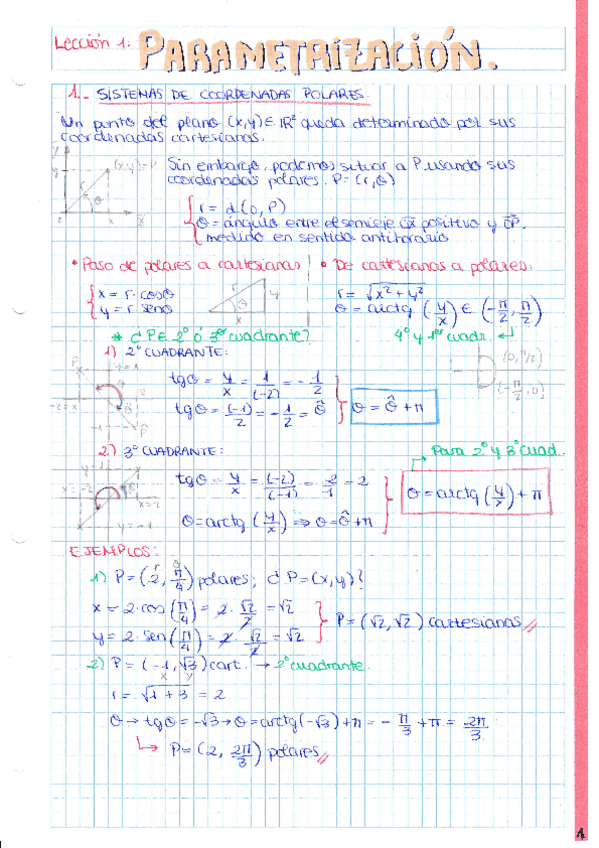 Lección 1: PARAMETRIZACIÓN.
1.- SISTEMAS DE COORDENADAS POLARES.
Un punto del plano (x,y) ∈ ℝ² queda determinado por sus
coordenadas cartesianas.
(x,y)=P
Sin embargo, podemos situar a P usando sus
coordenadas polares. P=(r,θ)
r = d(O,P)
θ = ángulo entre el semieje OX positivo y OP,
medido en sentido antihorario
• Paso de polares a cartesianas
x = r·cosθ
y = r·senθ
• De cartesianas a polares:
r = √x²+y²
θ = arctg (y/x) ∈ (-π/2, π/2)
4º y 1er cuadr.
* ¿P∈ 2º ó 3er cuadrante?
1) 2º CUADRANTE:
tgθ = y/x = 1/(-2) = -1/2
tgθ = (-1)/2 = -1/2 = θ̂
θ = θ̂ + π
(0, π/2)
(-π/2, 0)
2) 3º CUADRANTE:
Para 2º y 3º cuad.
tgθ = y/x = (-2)/(-1) = -2/-1 = 2
θ = arctg (y/x) ⇒ θ = θ̂ + π
θ = arctg (y/x) + π
EJEMPLOS:
1) P = (2, π/4) polares; ¿P=(x,y)?
x = 2·cos (π/4) = 2·√2/2 = √2
y = 2·sen (π/4) = 2·√2/2 = √2
P = (√2, √2) cartesianas //
2) P = (-1, √3) cart. → 2º cuadrante.
r = √1+3 = 2
θ → tgθ = -√3 → θ = arctg(-√3)+π = -π/3 + π = 2π/3.
↳ P = (2, 2π/3) polares //
1